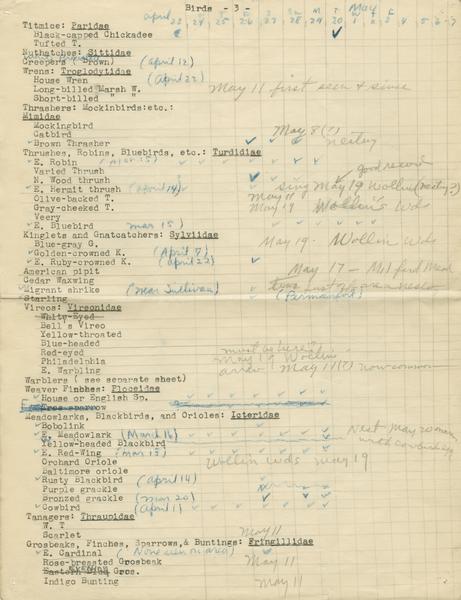 Birds - 3 -
april May
Titmice: Paridae
Black-capped Chickadee
Tufted T.
Nuthatches: Sittidae
Creepers Brown) (april 12)
Wrens: Troglodytidae
House Wren (april 22)
Long-billed Marsh W. May 11 first seen & since
Short-billed " "
Thrashers: Mockinbirds:etc.:
Mimidae
Mockingbird
Catbird May 8(?)
Brown Thrasher nesting
Thrushes, Robins, Bluebirds, etc.: Turdidiae
E. Robin (Mar 15)
Varied Thrush good record
N. Wood thrush
E. Hermit thrush (april 14) sing May 19 Wollin (nesting?)
Olive-backed T. May 11
Gray-cheeked T. May 19 Wollin's wds
Veery
E. Bluebird mar 15)
Kinglets and Gnatcatchers: Sylviidae
Blue-gray G. May 19. Wollin wds
Golden-crowned K. (april 7)
E. Ruby-crowned K. (april 22)
American pipit May 17 -
Cedar Waxwing
Migrant shrike (Mar Sullivan)
Starling (Permanent)
Vireos: Vireonidae
White-Eyed
Bell's Vireo
Yellow-throated
Blue-headed
Red-eyed
Philadelphia May 19 Wollin
E. Warbling May 11(?) now common
Warblers ( see separate sheet)
Weaver Finches: Ploceidae
House or English Sp.
Tree sparrow
Meadowlarks, Blackbirds, and Orioles: Icteridae
Bobolink
E. Meadowlark (March 16) Nest May 20
Yellow-headed Blackbird
E. Red-Wing (Mar 13)
Orchard Oriole Wollin wds may 19
Baltimore oriole
Rusty Blackbird (april 14)
Purple grackle
Bronzed grackle (Mar 20)
Cowbird (april 11)
Tanagers: Thraupidae
W. T.
Scarlet May 11
Grosbeaks, Finches, Sparrows,& Buntings: Fringillidae
E. Cardinal (None seen in area)
Rose-breasted Grosbeak May 11
Evening Gros.
Indigo Bunting May 11